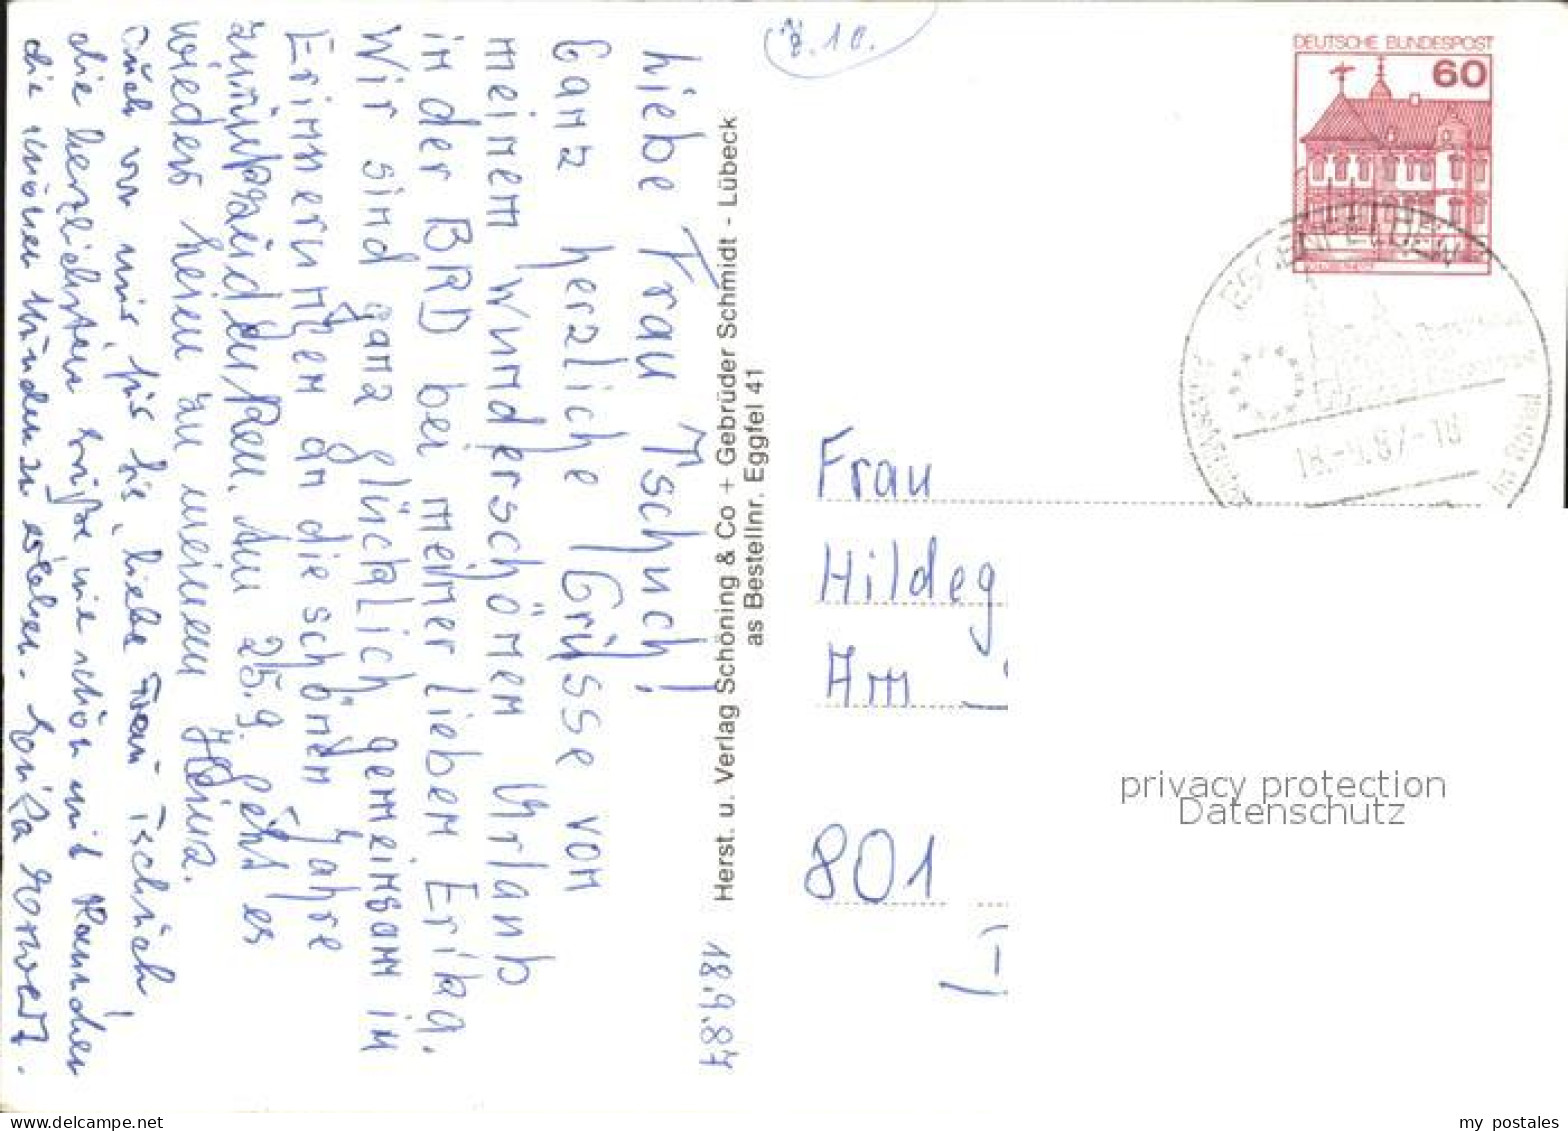 18.9.87
Liebe Frau Tschuch!
Ganz herzliche Grüsse von
meinem wunderschönen Urlaub
in der BRD bei meiner lieben Erika.
Wir sind ganz glücklich gemeinsam in
Erinnerungen an die schönen Jahre
zurückzudenken. Am 25.9. geht es
wieder heim zu meinem Heinz.
Auch von mir für Sie, liebe Frau Tschuch,
die herzlichsten Grüße wie schön mit
die
Herst. u. Verlag Schöning & Co + Gebrüder Schmidt - Lübeck
as Bestellnr. Eggfel 41
DEUTSCHE BUNDESPOST
60
EGGENFELDEN
18.-9.87-18
Frau
Hildeg
Am
801
privacy protection
Datenschutz
www.delcampe.net
my_postales